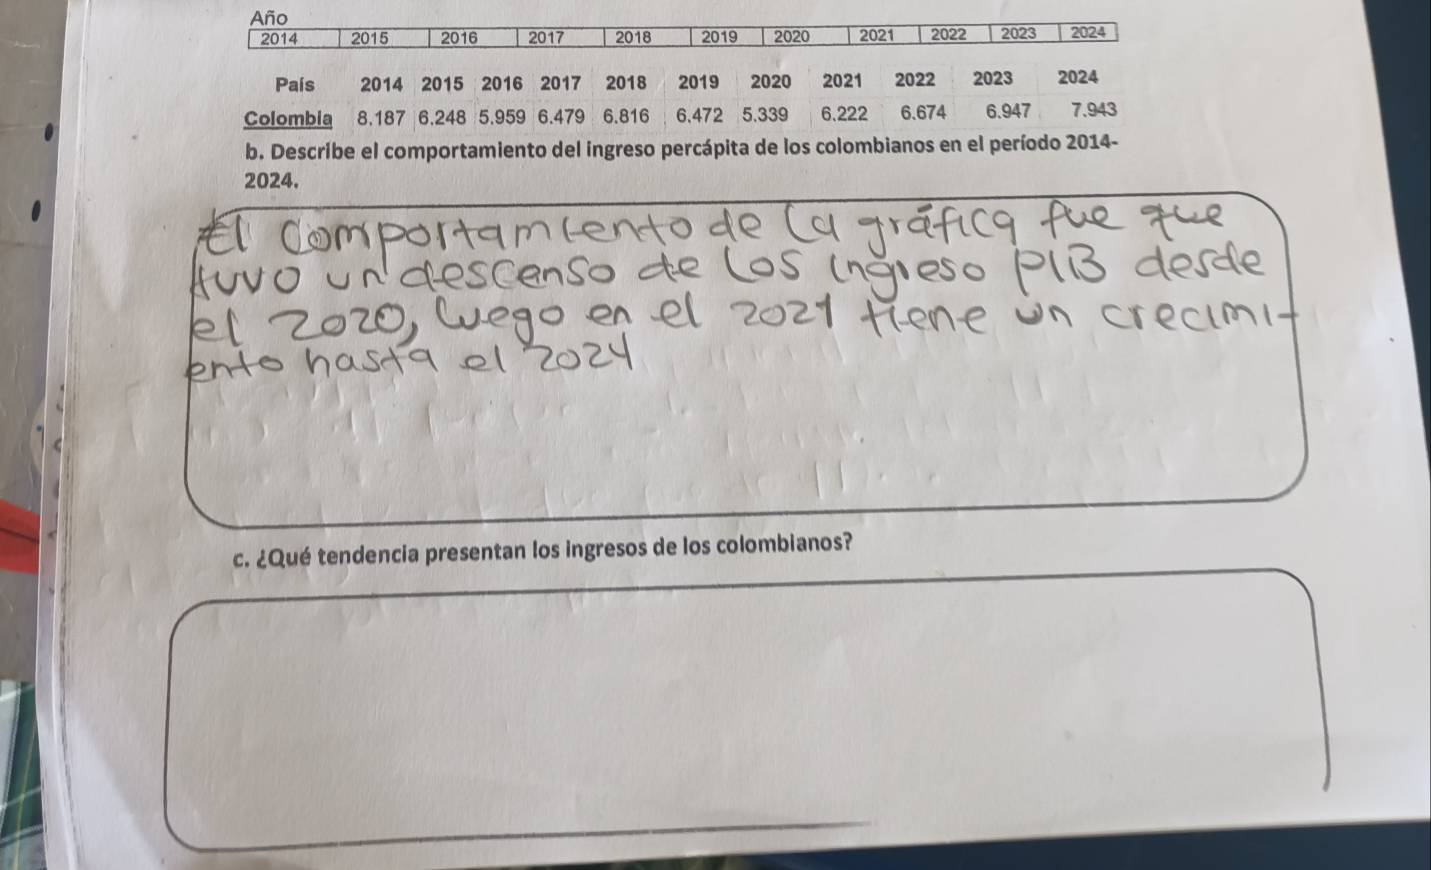 Año
2014 2015 2016 2017 2018 2019 2020 2021 2022 2023 2024
País 2014 2015 2016 2017 2018 2019 2020 2021 2022 2023 2024
Colombia 8.187 6.248 5.959 6.479 6.816 6.472 5.339 6.222 6.674 6.947 7.943
b. Describe el comportamiento del ingreso percápita de los colombianos en el período 2014-
2024.
El comportamiento de la gráfica fue que
tuvo un descenso de los ingreso PIB desde
el 2020, luego en el 2021 tiene un crecimi-
ento hasta el 2024
c. ¿Qué tendencia presentan los ingresos de los colombianos?